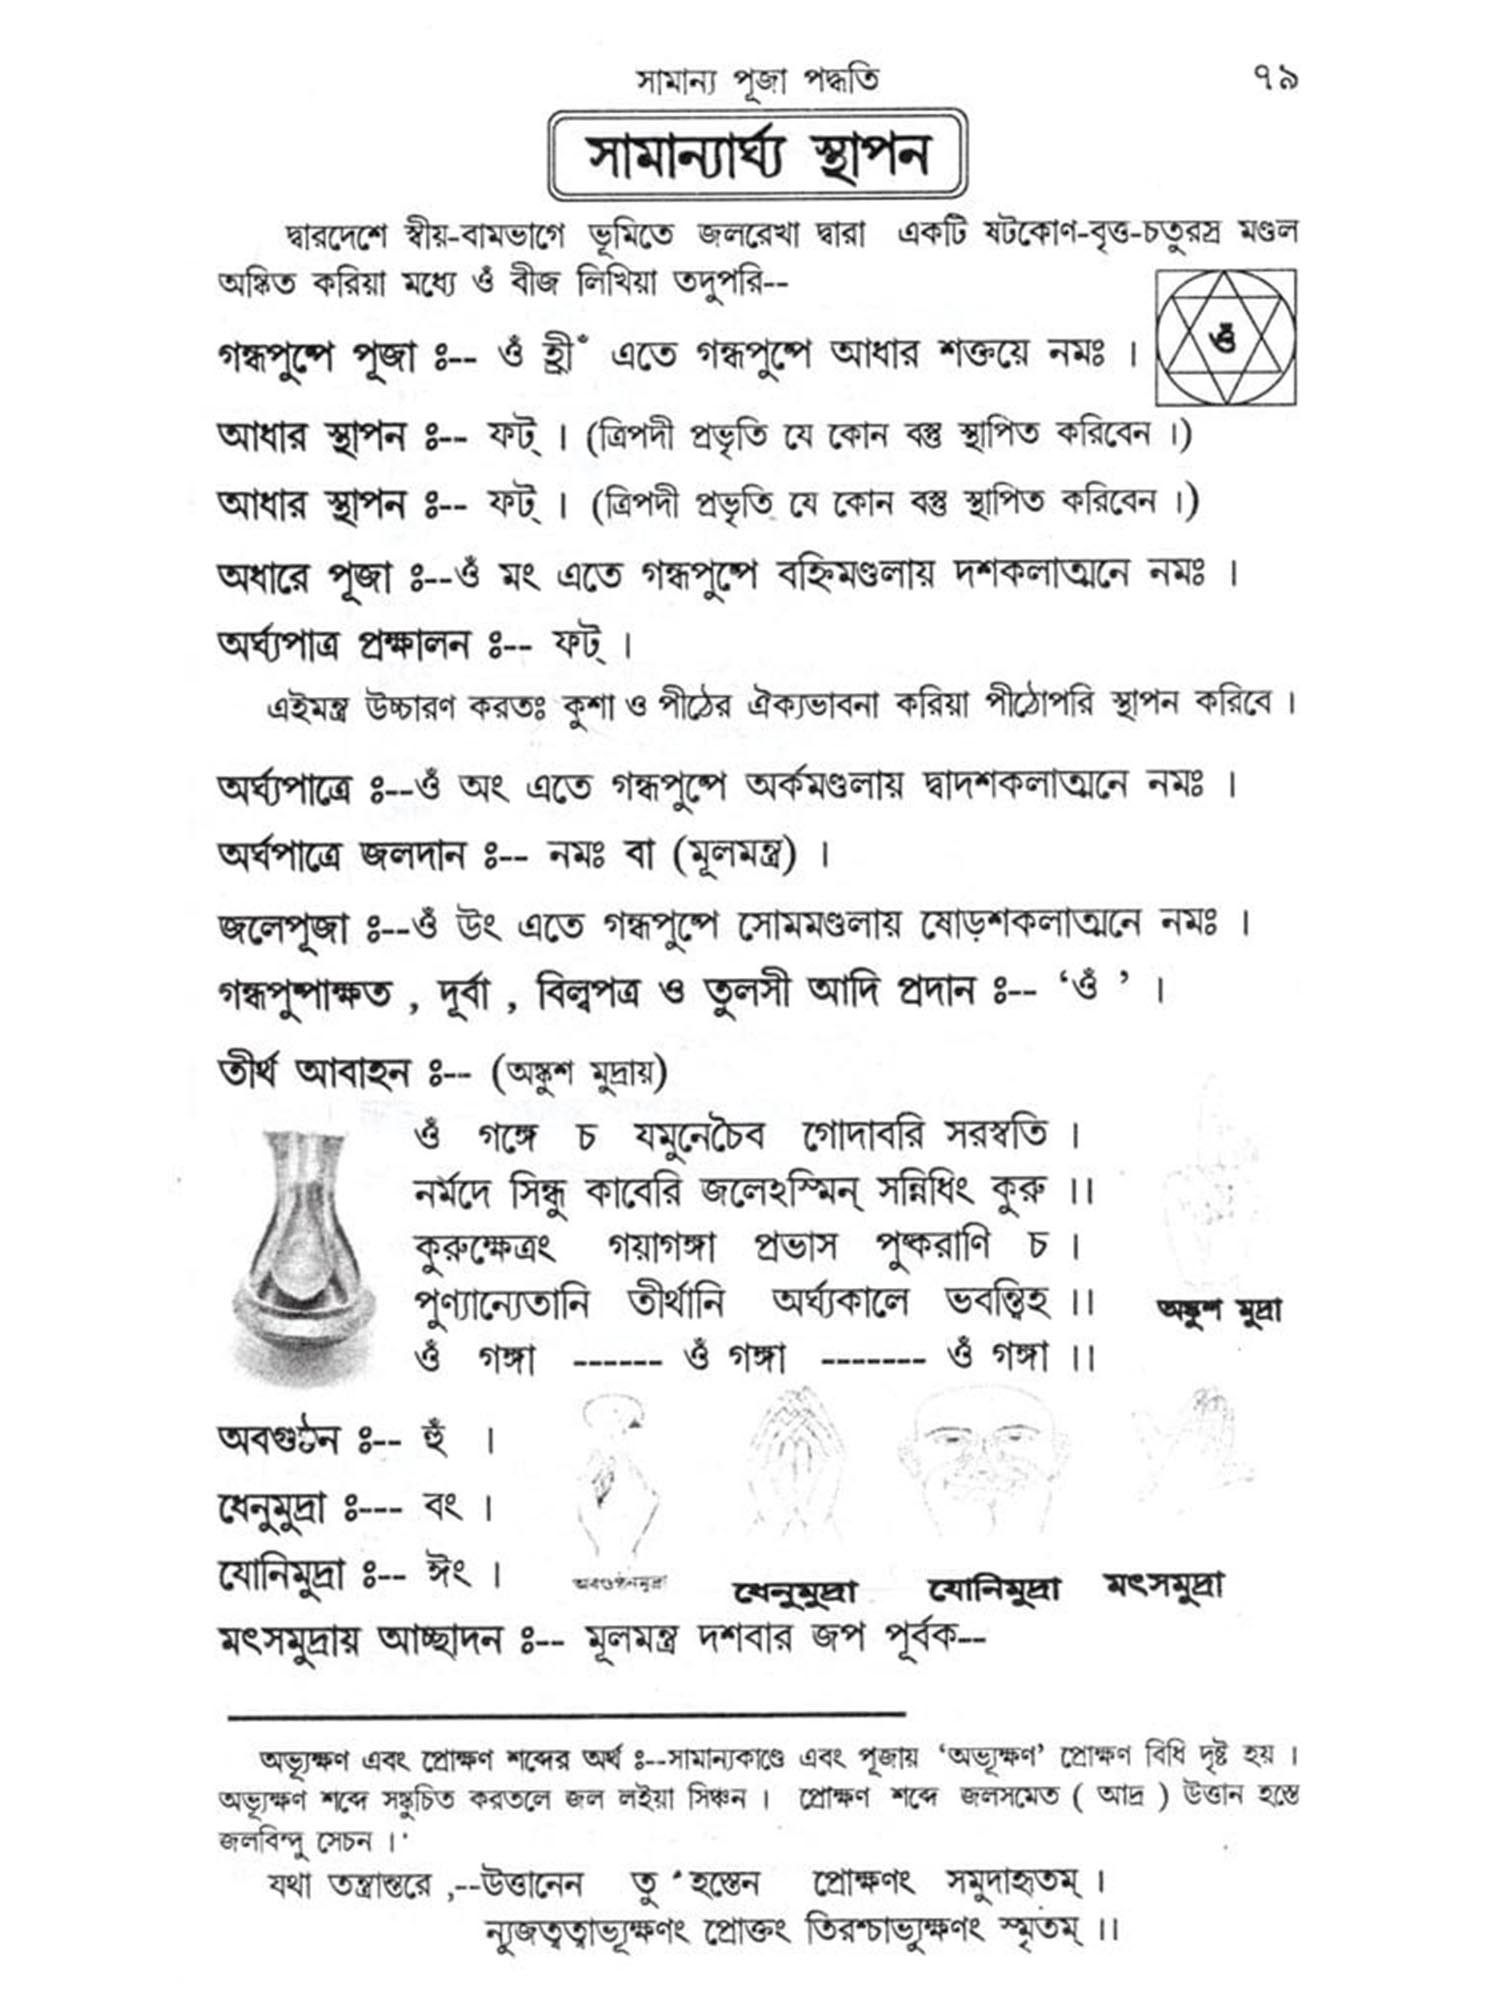 সামান্য পূজা পদ্ধতি ৭৯
সামান্যার্ঘ্য স্থাপন
দ্বারদেশে স্বীয়-বামভাগে ভূমিতে জলরেখা দ্বারা একটি ষটকোণ-বৃত্ত-চতুরস্র মণ্ডল
অঙ্কিত করিয়া মধ্যে ওঁ বীজ লিখিয়া তদুপরি--
ওঁ
গন্ধপুষ্পে পূজা ঃ-- ওঁ হ্রীঁ এতে গন্ধপুষ্পে আধার শক্তয়ে নমঃ ।
আধার স্থাপন ঃ-- ফট্ । (ত্রিপদী প্রভৃতি যে কোন বস্তু স্থাপিত করিবেন ।)
আধার স্থাপন ঃ-- ফট্ । (ত্রিপদী প্রভৃতি যে কোন বস্তু স্থাপিত করিবেন ।)
অধারে পূজা ঃ--ওঁ মং এতে গন্ধপুষ্পে বহ্নিমণ্ডলায় দশকলাত্মনে নমঃ ।
অর্ঘ্যপাত্র প্রক্ষালন ঃ-- ফট্ ।
এইমন্ত্র উচ্চারণ করতঃ কুশা ও পীঠের ঐক্যভাবনা করিয়া পীঠোপরি স্থাপন করিবে ।
অর্ঘ্যপাত্রে ঃ--ওঁ অং এতে গন্ধপুষ্পে অর্কমণ্ডলায় দ্বাদশকলাত্মনে নমঃ ।
অর্ঘপাত্রে জলদান ঃ-- নমঃ বা (মূলমন্ত্র) ।
জলেপূজা ঃ--ওঁ উং এতে গন্ধপুষ্পে সোমমণ্ডলায় ষোড়শকলাত্মনে নমঃ ।
গন্ধপুষ্পাক্ষত , দূর্বা , বিল্বপত্র ও তুলসী আদি প্রদান ঃ-- ‘ওঁ ’ ।
তীর্থ আবাহন ঃ-- (অঙ্কুশ মুদ্রায়)
ওঁ গঙ্গে চ যমুনেচৈব গোদাবরি সরস্বতি ।
নর্মদে সিন্ধু কাবেরি জলেঽস্মিন্ সন্নিধিং কুরু ।।
কুরুক্ষেত্রং গয়াগঙ্গা প্রভাস পুষ্করাণি চ ।
পুণ্যান্যেতানি তীর্থানি অর্ঘ্যকালে ভবন্ত্বিহ ।।
অঙ্কুশ মুদ্রা
ওঁ গঙ্গা ------ ওঁ গঙ্গা ------- ওঁ গঙ্গা ।।
অবগুণ্ঠন ঃ-- হুঁ ।
ধেনুমুদ্রা ঃ--- বং ।
যোনিমুদ্রা ঃ-- ঈং ।
অবগুণ্ঠনমুদ্রা ধেনুমুদ্রা যোনিমুদ্রা মৎসমুদ্রা
মৎসমুদ্রায় আচ্ছাদন ঃ-- মূলমন্ত্র দশবার জপ পূর্বক--
অভ্যূক্ষণ এবং প্রোক্ষণ শব্দের অর্থ ঃ--সামান্যকাণ্ডে এবং পূজায় ‘অভ্যূক্ষণ’ প্রোক্ষণ বিধি দৃষ্ট হয় ।
অভ্যূক্ষণ শব্দে সঙ্কুচিত করতলে জল লইয়া সিঞ্চন । প্রোক্ষণ শব্দে জলসমেত ( আদ্র ) উত্তান হস্তে
জলবিন্দু সেচন ।
যথা তন্ত্রান্তরে ,--উত্তানেন তু হস্তেন প্রোক্ষণং সমুদাহৃতম্ ।
ন্যুজত্বত্বাভ্যূক্ষণং প্রোক্তং তিরশ্চাভ্যুক্ষণং স্মৃতম্ ।।